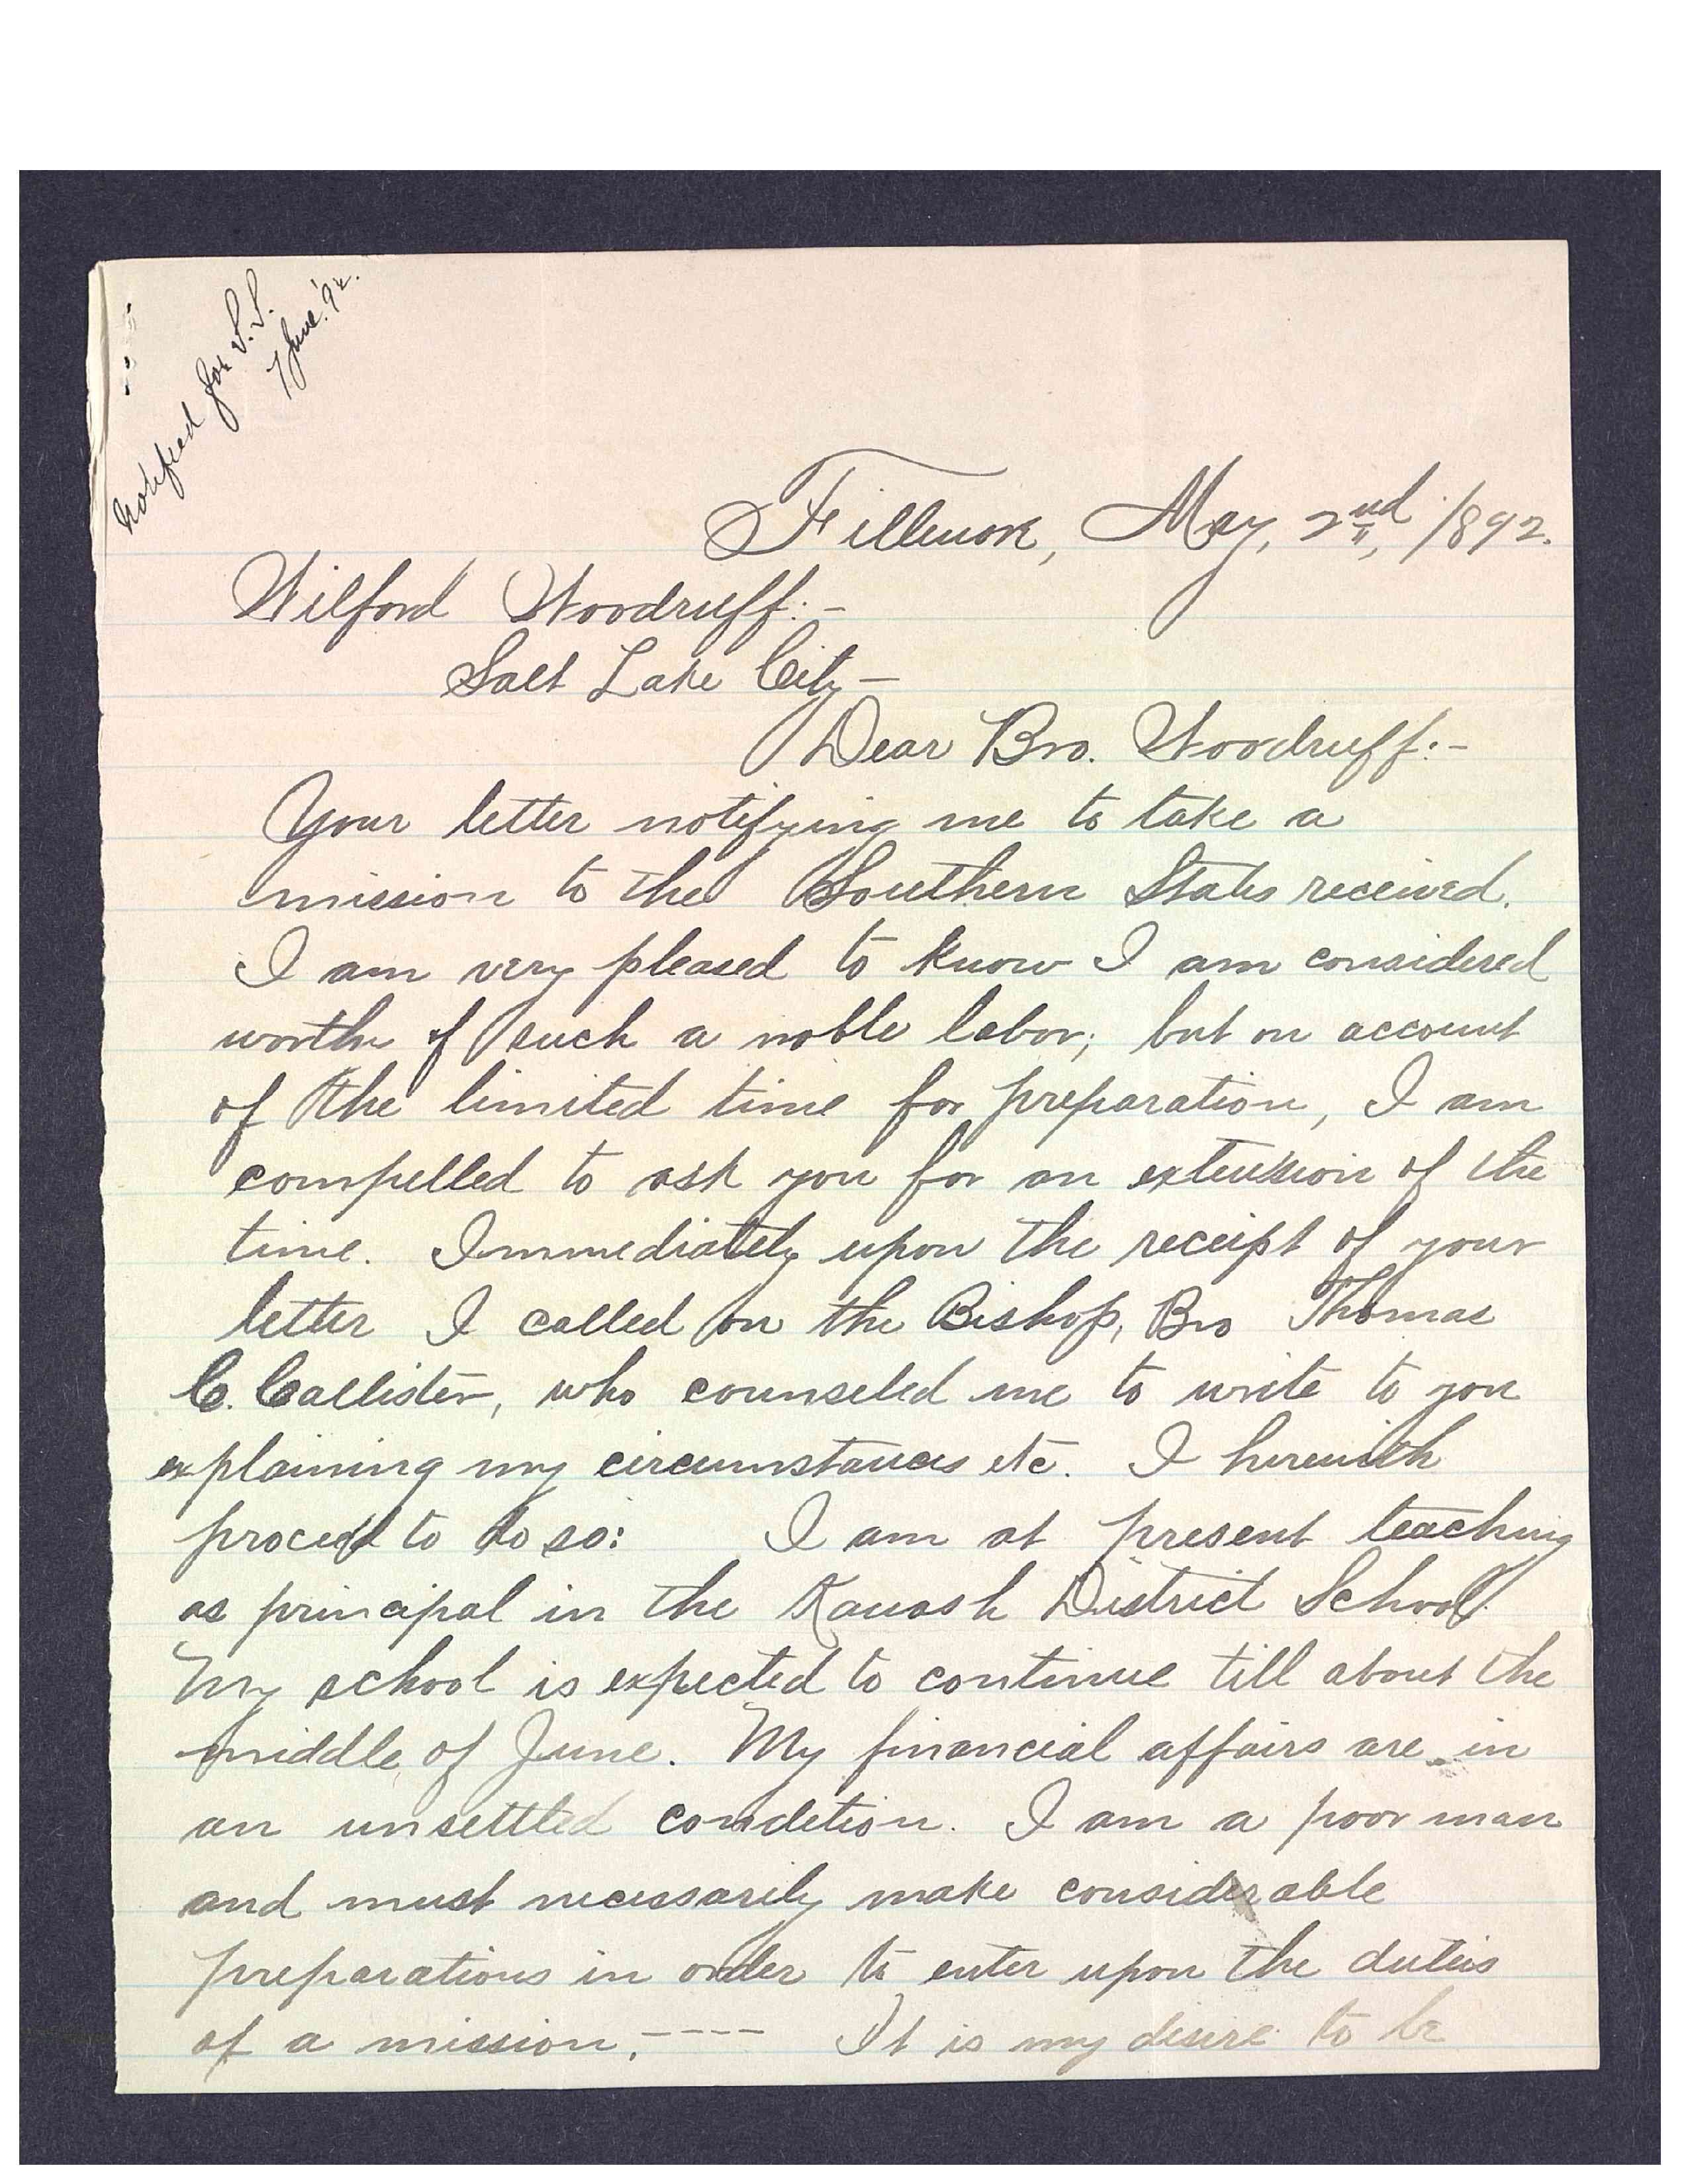 Notified for S.S.
7 June '92.
Fillmore, May, 2nd, 1892.
Wilford Woodruff:-
Salt Lake City-
Dear Bro. Woodruff:-
Your letter notifying me to take a
mission to the Southern States received.
I am very pleased to know I am considered
worthy of such a noble labor; but on account
of the limited time for preparation, I am
compelled to ask you for an extension of the
time. Immediately upon the receipt of your
letter I called on the Bishop, Bro Thomas
C. Callister, who counseled me to write to you
explaining my circumstances etc. I herewith
proceed to do so: I am at present teaching
as principal in the Kanosh District School.
My school is expected to continue till about the
middle of June. My financial affairs are in
an unsettled condition. I am a poor man
and must necessarily make considerable
preparations in order to enter upon the duties
of a mission. ---- It is my desire to be